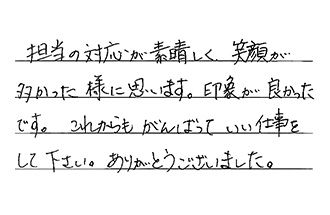 担当の対応が素晴しく、笑顔が
多かった様に思います。印象が良かった
です。これからもがんばっていい仕事を
して下さい。ありがとうございました。